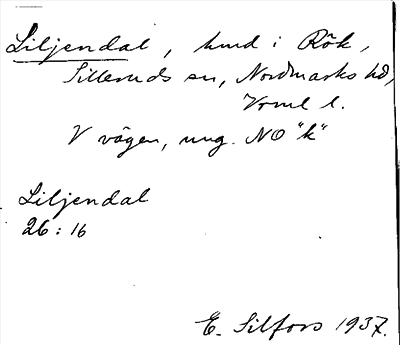 Liljendal, hmd i Rök,
Silleruds sn, Nordmarks hd,
Vrml l.
V vägen, ung. NO "k"
Liljendal
26:16
E. Silfors 1937.